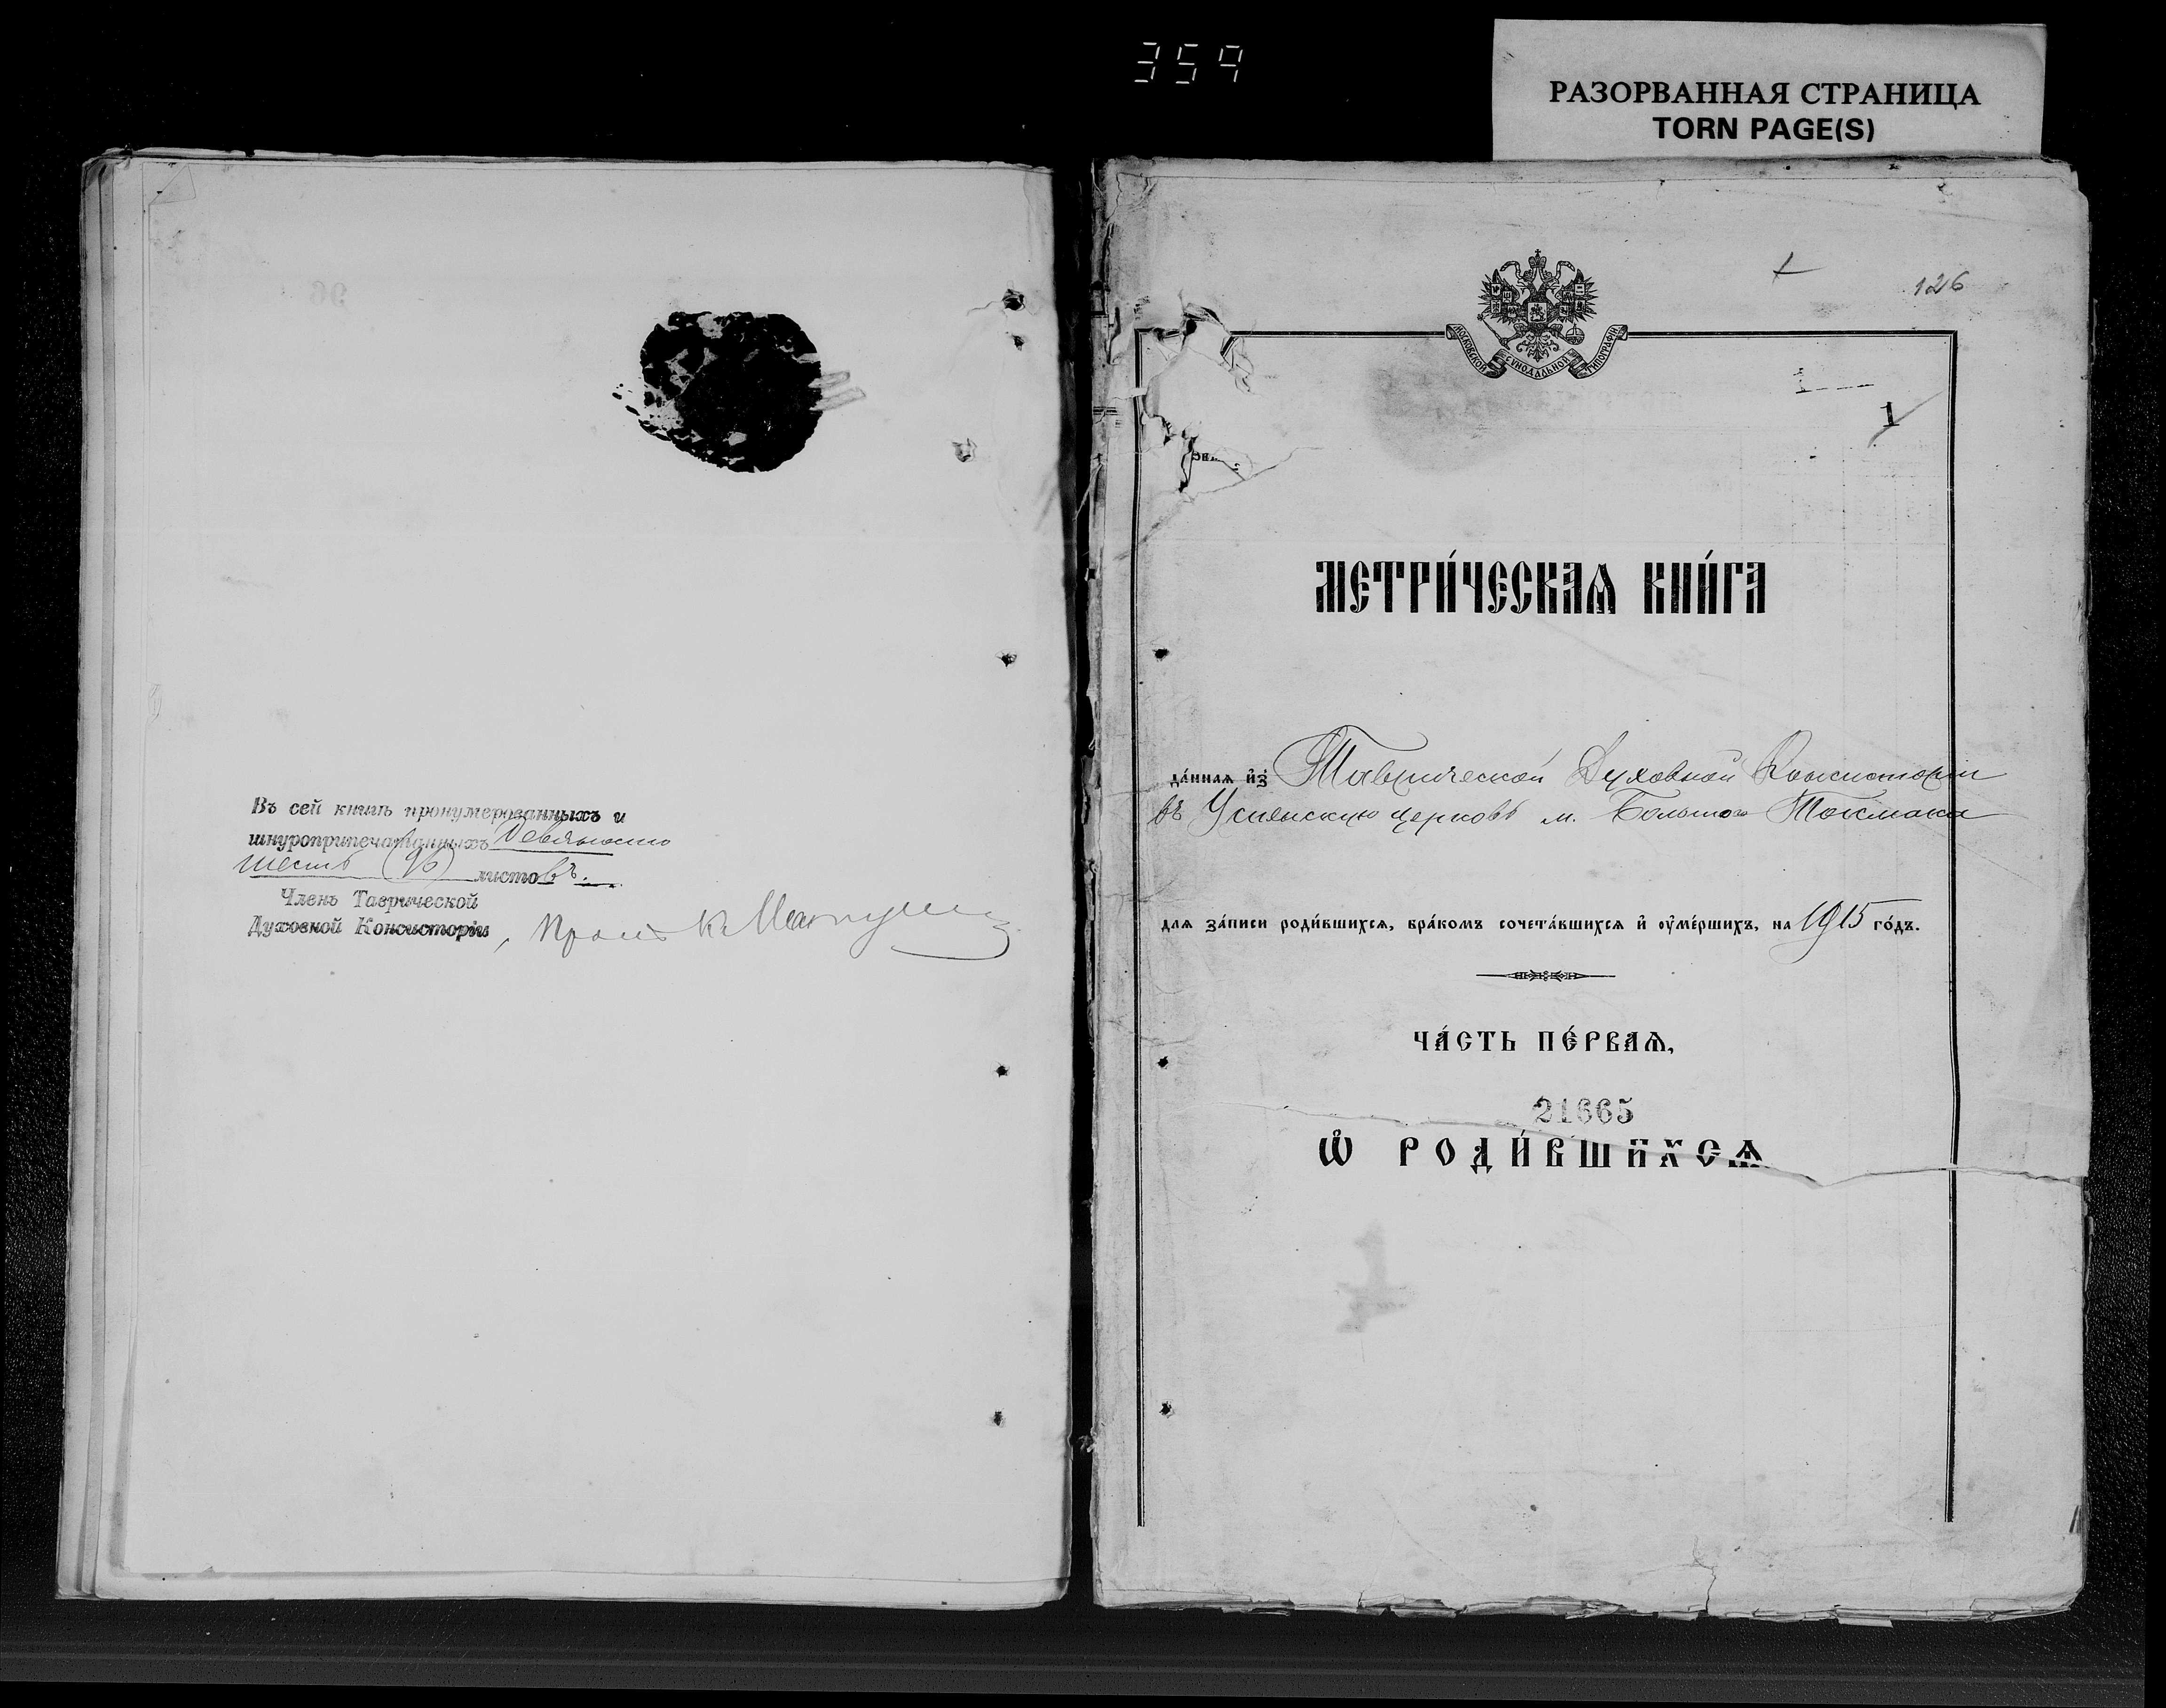 359
РАЗОРВАННАЯ СТРАНИЦА
TORN PAGE(S)
Въ сей книгѣ пронумерованныхъ и
шнуроприпечатанныхъ Девяносто
шесть (96) листовъ.
Членъ Таврической
Духовной Консисторіи,
126
МОСКОВСКОЙ СѴНОДАЛЬНОЙ ТИПОГРАФІИ
1
МЕТРИ́ЧЕСКАѦ КНИ́ГА
да́ннаѧ и҆з̾ Таврической Духовной Консисторіи
въ Успенскую церковь м. Большого Токмака
для за́писи роди́вшихсѧ, бра́комъ сочета́вшихсѧ и҆ оу҆ме́ршихъ, на 1915 го́дъ.
ЧА́СТЬ ПЕ́РВАѦ,
21665
Ѡ҆ РОДИ́ВШИХСѦ